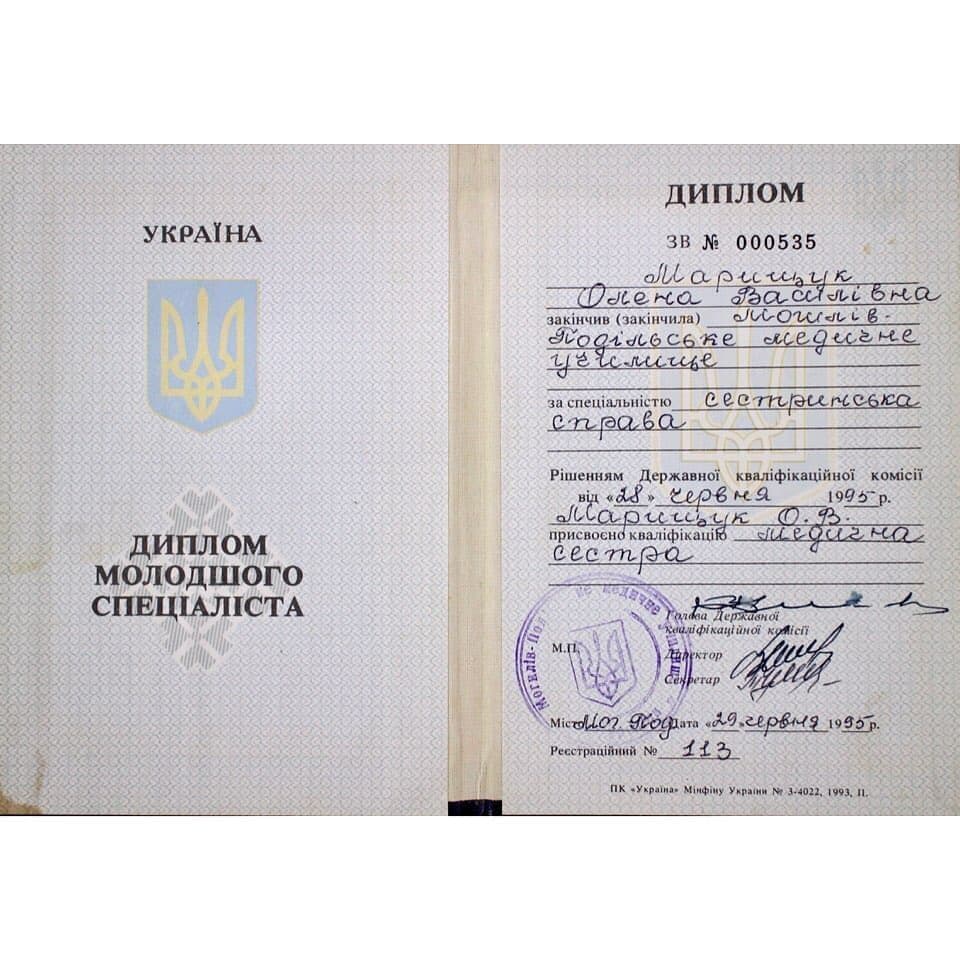 УКРАЇНА
ДИПЛОМ
МОЛОДШОГО
СПЕЦІАЛІСТА
ДИПЛОМ
ЗВ № 000535
Марищук
Олена Василівна
закінчив (закінчила) Могилів-
Подільське медичне
училище
за спеціальністю сестринська
справа
Рішенням Державної кваліфікаційної комісії
від «28» червня 1995 р.
Марищук О. В.
присвоєно кваліфікацію медична
сестра
Голова Державної
кваліфікаційної комісії
М.П.
Директор
Секретар
Могилів-Под не медичне училище
Місто Мог. Под. Дата «29» червня 1995 р.
Реєстраційний № 113
ПК «Україна» Мінфіну України № 3-4022, 1993, II.